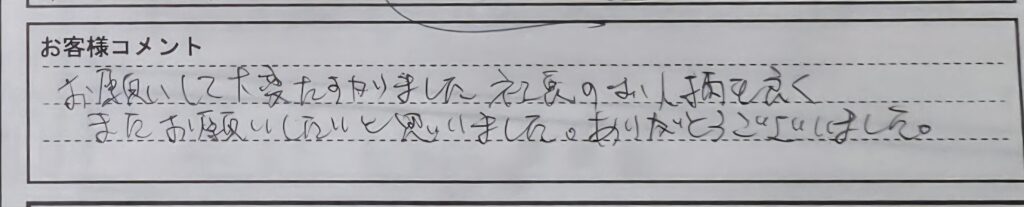 お客様コメント
お願いして大変たすかりました 社長のお人柄も良く
またお願いしたいと思いました。ありがとうございました。